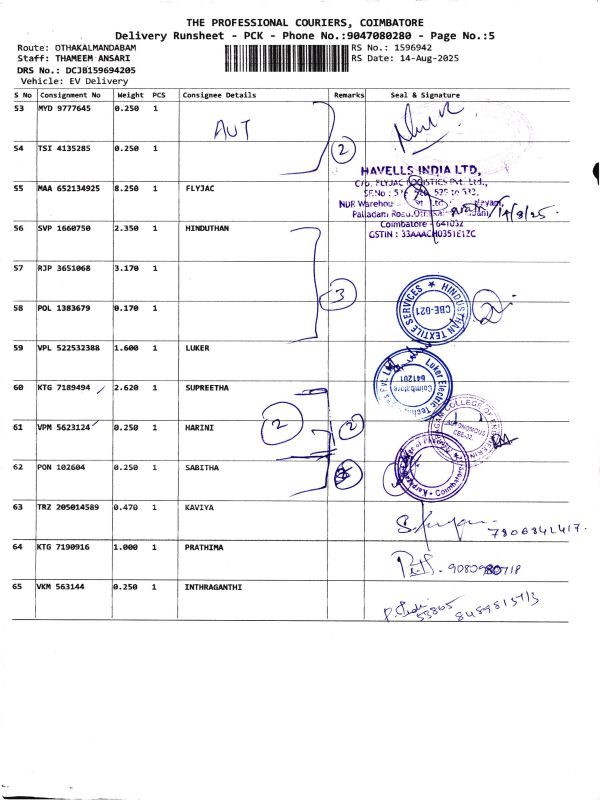 THE PROFESSIONAL COURIERS, COIMBATORE
Delivery Runsheet - PCK - Phone No.:9047080280 - Page No.:5
Route: OTHAKALMANDABAM RS No.: 1596942
Staff: THAMEEM ANSARI RS Date: 14-Aug-2025
DRS No.: DCJB159694205
Vehicle: EV Delivery
S No Consignment No Weight PCS Consignee Details Remarks Seal & Signature
53 MYD 9777645 0.250 1
AUT
54 TSI 4135285 0.250 1 2
HAVELLS INDIA LTD,
55 MAA 652134925 8.250 1 FLYJAC
C/o. FLYJAC LOGISTICS Pvt. Ltd.,
14/8/25.
Coimbatore - 641032
GSTIN : 33AAACH0351E1ZC
56 SVP 1660750 2.350 1 HINDUTHAN
57 RJP 3651068 3.170 1 3
58 POL 1383679 0.170 1
HINDUSTHAN TEXTILE SERVICES
CBE-021
59 VPL 522532388 1.600 1 LUKER
Coimbatore
641201
60 KTG 7189494 2.620 1 SUPREETHA
61 VPM 5623124 0.250 1 HARINI 2 2
AUTONOMOUS
CBE-32.
62 PON 102604 0.250 1 SABITHA
Coimbatore
63 TRZ 205014589 0.470 1 KAVIYA
7806842417.
64 KTG 7190916 1.000 1 PRATHIMA
65 VKM 563144 0.250 1 INTHRAGANTHI